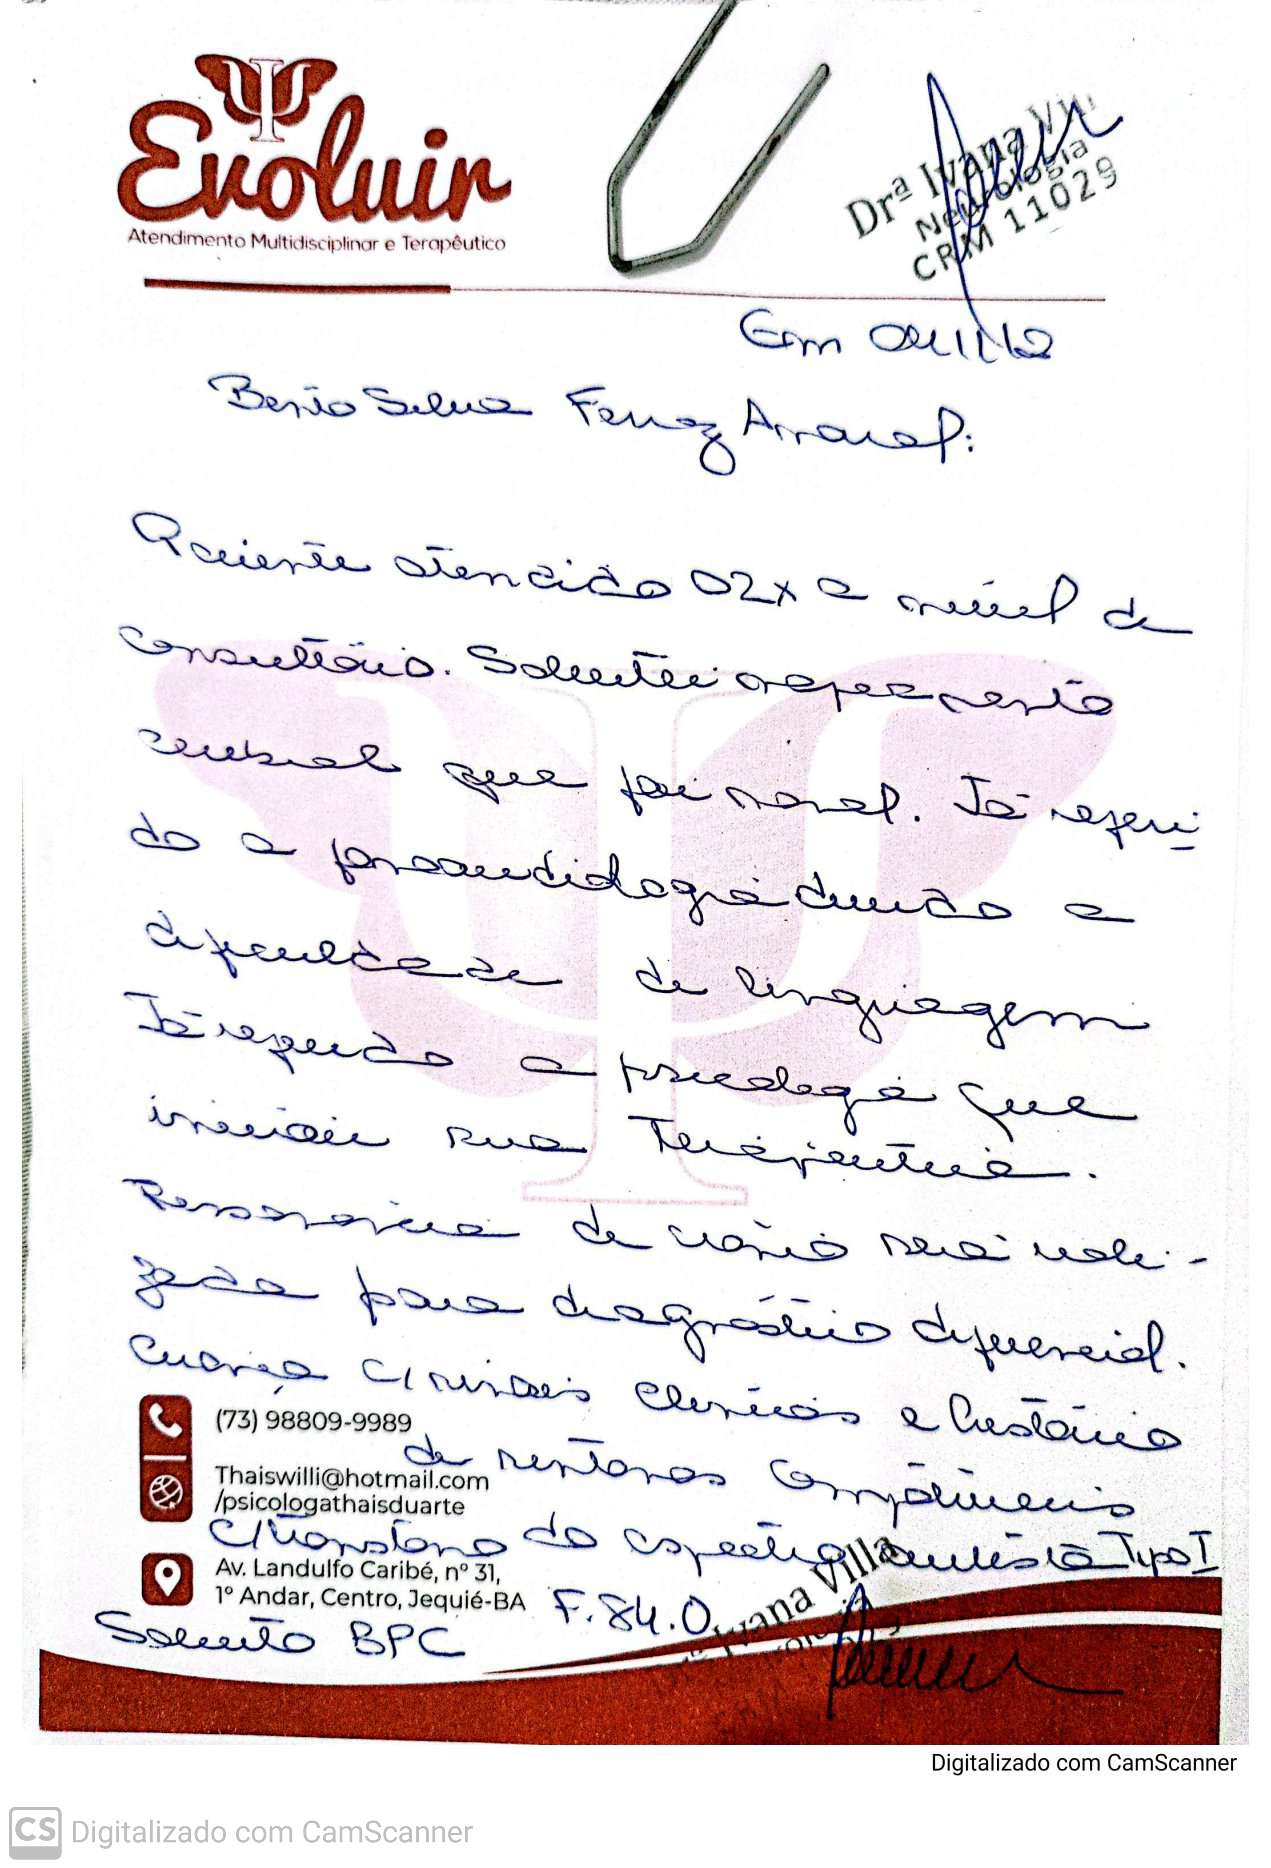 Evoluir
Atendimento Multidisciplinar e Terapêutico
Drª Ivana Vill
Neurologia
CRM 11029
Em
Bento Silva Ferraz Amaral:
Paciente atendido 02x a nível de
consultório. Solicitei mapeamento
cerebral que foi normal. Já referi-
do a fonoaudióloga devido a
dificuldade de linguagem
Já referido a psicóloga que
iniciou sua Terapêutica.
Ressonância de crânio será reali-
zada para diagnóstico diferencial.
Criança c/ sinais clínicos e história
de sintomas compatíveis
c/ transtorno do espectro autista Tipo I
F.84.0
Solicito BPC
(73) 98809-9989
Thaiswilli@hotmail.com
/psicologathaisduarte
Av. Landulfo Caribé, nº 31,
1º Andar, Centro, Jequié-BA
Drª Ivana Villa
Digitalizado com CamScanner
CS Digitalizado com CamScanner